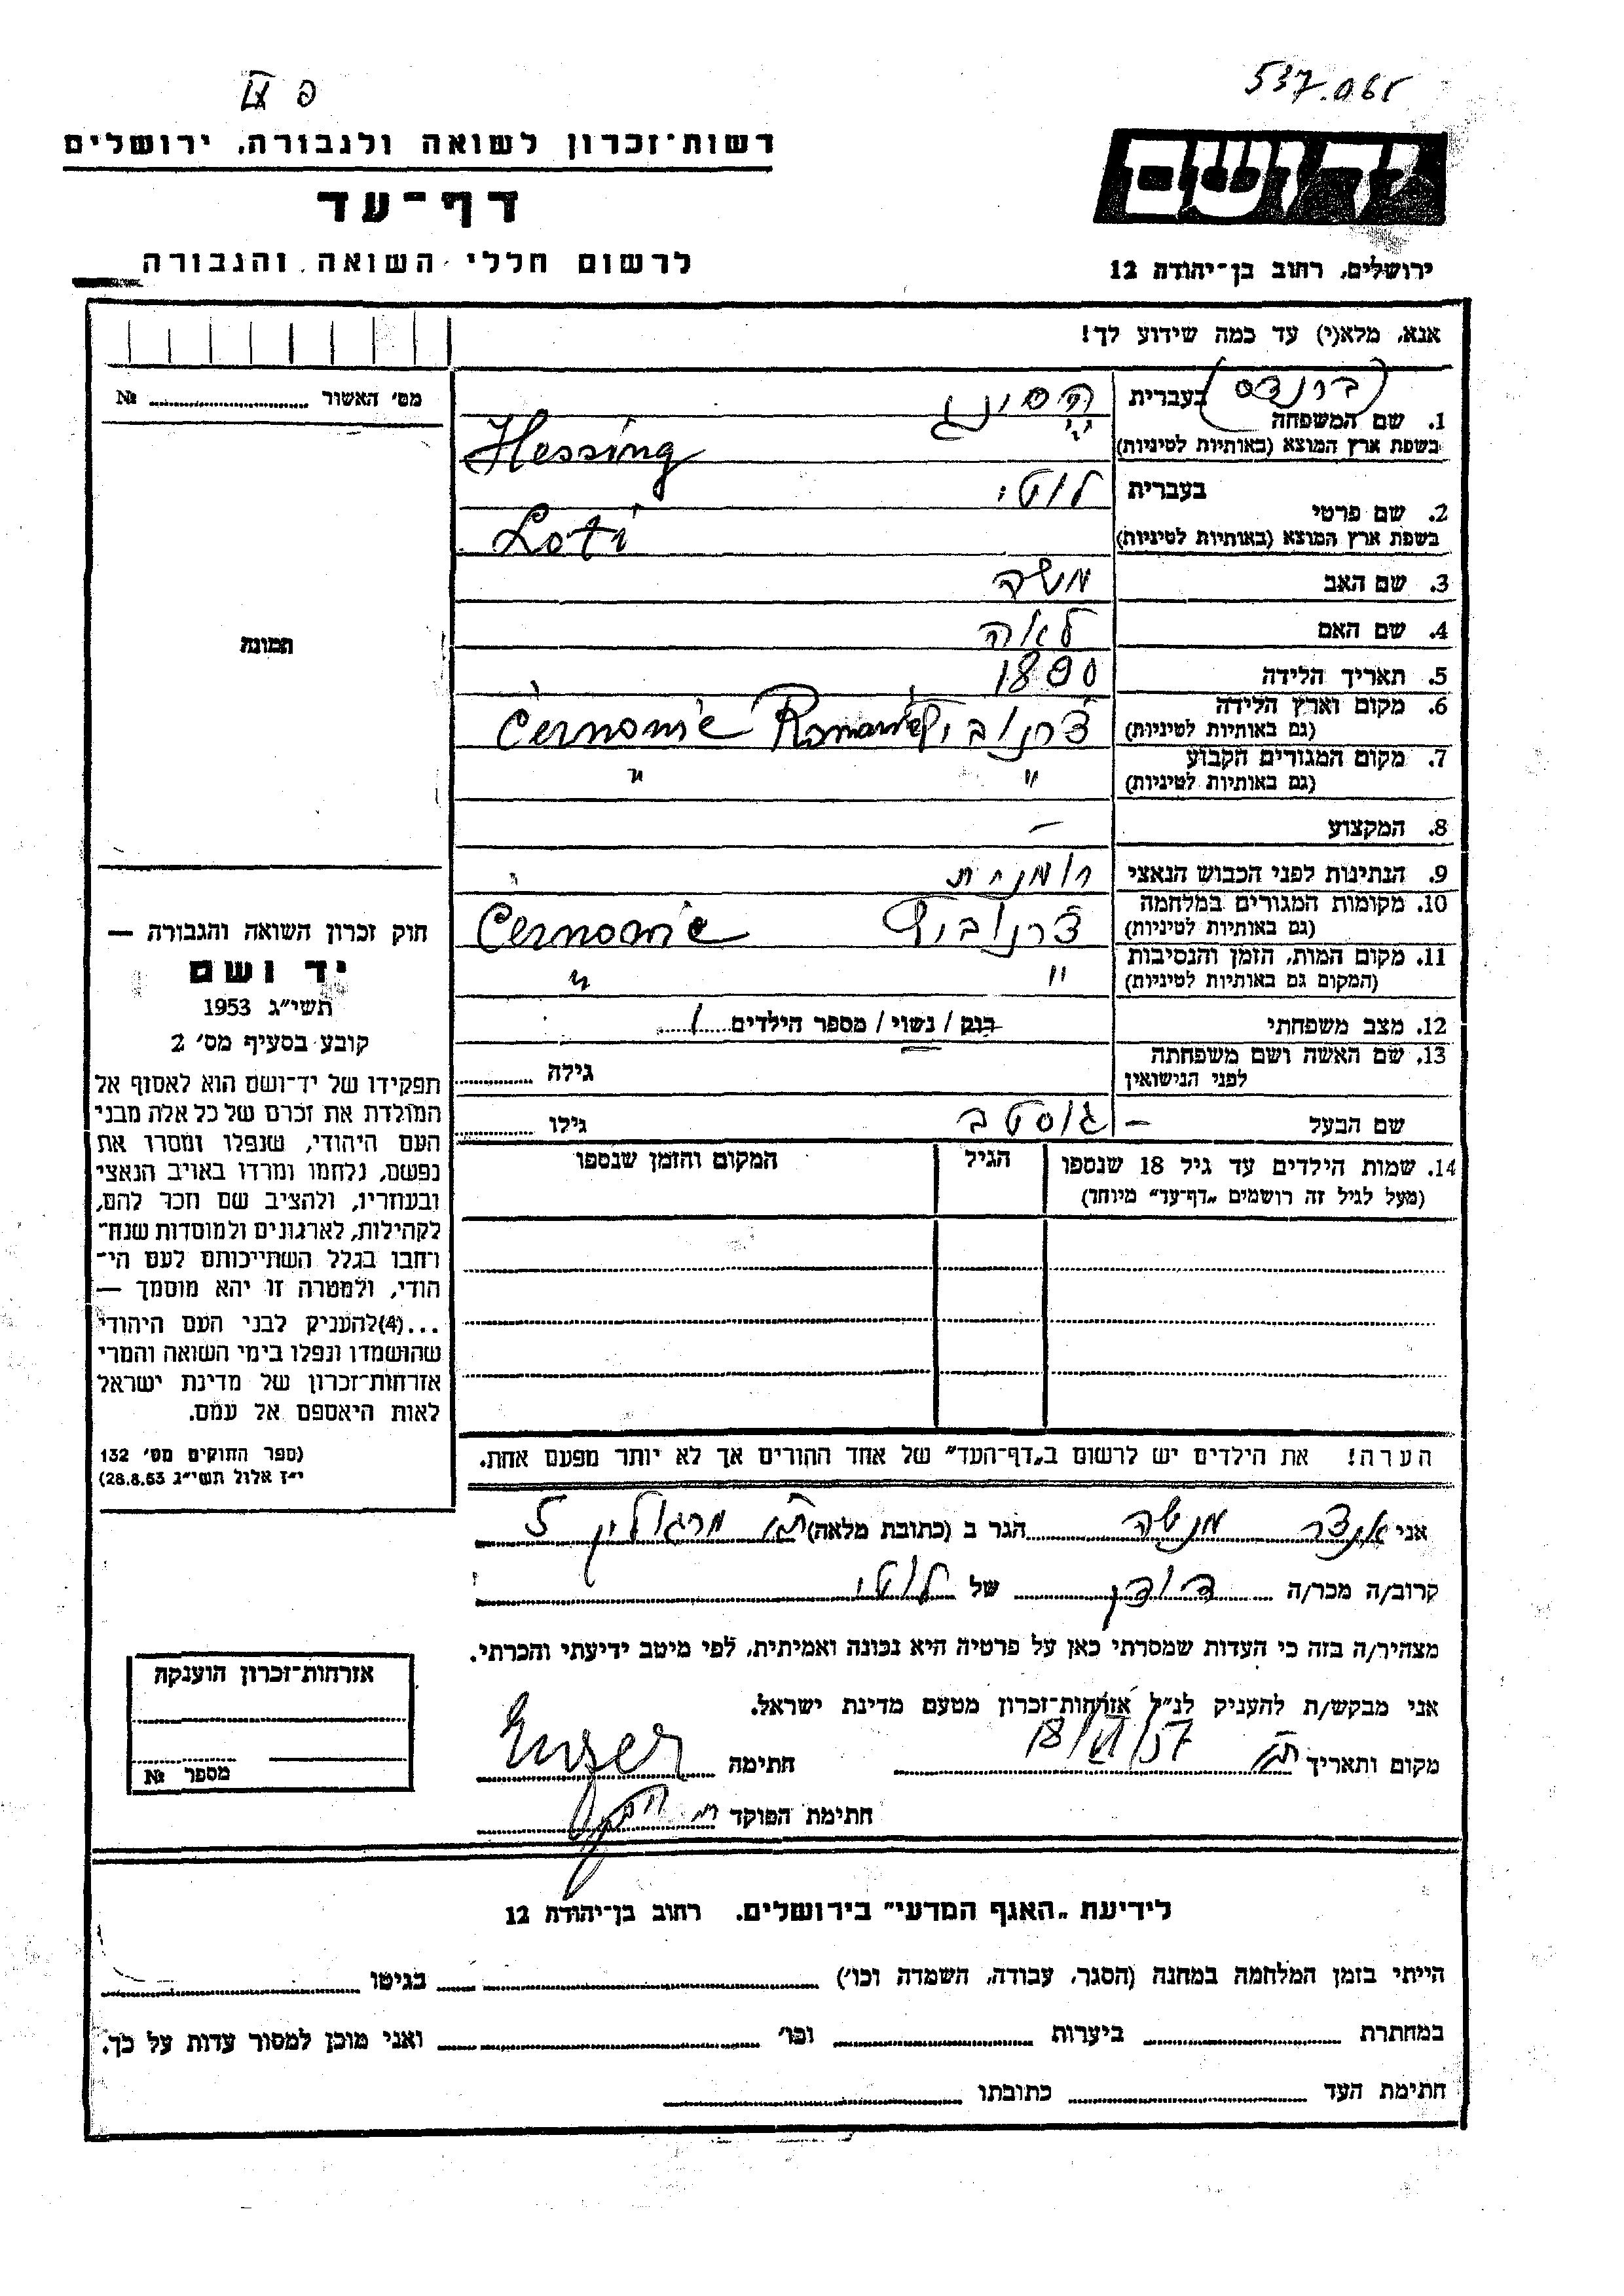 537.065
פ
יד ושם
רשות־זכרון לשואה ולגבורה, ירושלים
דף־עד
לרשום חללי השואה והגבורה
ירושלים, רחוב בן־יהודה 12
אנא, מלא(י) עד כמה שידוע לך!
מס׳ האשור ........ №
(ברנדס)
1. שם המשפחה בעברית הסינג
בשפת ארץ המוצא (באותיות לטיניות) Hessing
2. שם פרטי בעברית לוטי
בשפת ארץ המוצא (באותיות לטיניות) Loti
3. שם האב משה
4. שם האם לאה
תמונה
5. תאריך הלידה 1890
6. מקום וארץ הלידה (גם באותיות לטיניות) צרנוביץ Romania
7. מקום המגורים הקבוע (גם באותיות לטיניות) " "
8. המקצוע —
9. הנתינות לפני הכבוש הנאצי רומנית
10. מקומות המגורים במלחמה (גם באותיות לטיניות) צרנוביץ
11. מקום המות, הזמן והנסיבות (המקום גם באותיות לטיניות) " "
12. מצב משפחתי רווק / נשוי / מספר הילדים 1
13. שם האשה ושם משפחתה לפני הנישואין גילה ........
שם הבעל — גוסטב גילו ........
14. שמות הילדים עד גיל 18 שנספו הגיל המקום והזמן שנספו
(מעל לגיל זה רושמים „דף־עד” מיוחד)
חוק זכרון השואה והגבורה —
יד ושם
תשי״ג 1953
קובע בסעיף מס׳ 2
תפקידו של יד־ושם הוא לאסוף אל
המולדת את זכרם של כל אלה מבני
העם היהודי, שנפלו ומסרו את
נפשם, נלחמו ומרדו באויב הנאצי
ובעוזריו, ולהציב שם וזכר להם,
לקהילות, לארגונים ולמוסדות שנח־
רחבו בגלל השתייכותם לעם הי־
הודי, ולמטרה זו יהא מוסמך —
...(4)להעניק לבני העם היהודי
שהושמדו ונפלו בימי השואה והמרי
אזרחות־זכרון של מדינת ישראל
לאות היאספם אל עמם.
(ספר החוקים מס׳ 132
י״ז אלול תשי״ג 28.8.53)
הערה! את הילדים יש לרשום ב„דף־העד” של אחד ההורים אך לא יותר מפעם אחת.
אני אנצר מנשה הגר ב (כתובת מלאה) ת"א מרגולין 5
קרוב/ה מכר/ה דודן של לוטי
מצהיר/ה בזה כי העדות שמסרתי כאן על פרטיה היא נכונה ואמיתית, לפי מיטב ידיעתי והכרתי.
אני מבקש/ת להעניק לנ״ל אזרחות־זכרון מטעם מדינת ישראל.
מקום ותאריך ת"א 18/VI/57 חתימה Enzer
חתימת הפוקד
אזרחות־זכרון הוענקה
מספר №
לידיעת „האגף המדעי” בירושלים, רחוב בן־יהודה 12
הייתי בזמן המלחמה במחנה (הסגר, עבודה, השמדה וכו׳) ........ בגיטו ........
במחתרת ........ ביערות ........ וכו׳ ........ ואני מוכן למסור עדות על כך.
חתימת העד ........ כתובתו ........